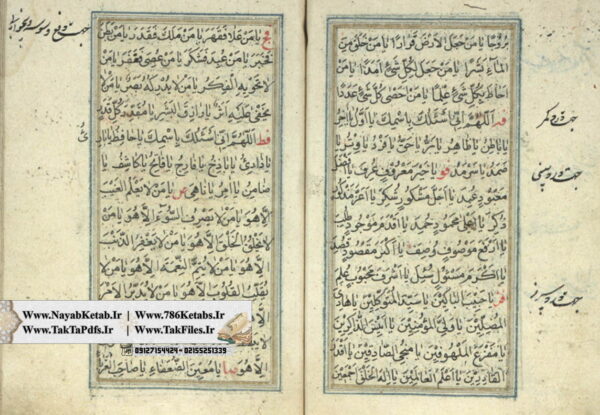 بروجا یا من جعل الارض قرارا یا من خلق من
الماء بشرا یا من جعل لکل شیء امدا یا من
احاط بکل شیء علما یا من احصی کل شیء عددا
فه اللهم انی اسئلک باسمک یا اول یا اخر
یا باطن یا ظاهر یا بر یا حق یا فرد یا وتر یا
صمد یا سرمد فو یا خیر معروف عرف یا افضل
معبود عبد یا اجل مشکور شکر یا اعز مذکور
ذکر یا اعلی محمود حمد یا اقدم موجود طلب
یا ارفع موصوف وصف یا اکبر مقصود قصد
یا اکرم مسئول سئل یا اشرف محبوب علم
فز یا حبیب الباکین یا سید المتوکلین یا هادی
المضلین یا ولی المؤمنین یا انیس الذاکرین
یا مفزع الملهوفین یا منجی الصادقین یا اقدر
القادرین یا اعلم العالمین یا اله الخلق اجمعین
فح یا من علا فقهر یا من ملک فقدر یا من بطن
فخبر یا من عبد فشکر یا من عصی فغفر یا من
لا تحویه الفکر یا من لا یدرکه بصر یا من لا
یخفی علیه اثر یا رازق البشر یا مقدر کل قدر
فط اللهم انی اسئلک باسمک یا حافظ یا
یا ذاری یا باذخ یا فارج یا فاتح یا کاشف یا
ضامن یا امر یا ناهی ص یا من لا یعلم الغیب
الا هو یا من لا یصرف السوء الا هو یا من
لا یخلق الخلق الا هو یا من لا یغفر الذنب
الا هو یا من لا یتم النعمة الا هو یا من لا
یقلب القلوب الا هو یا من لا یدبر الامر
الا هو صا یا معین الضعفاء یا صاحب
Www.NayabKetab.Ir Www.786Ketabs.Ir
Www.TakTaPdfs.Ir Www.TakFiles.Ir
09127154424 - 02155251339